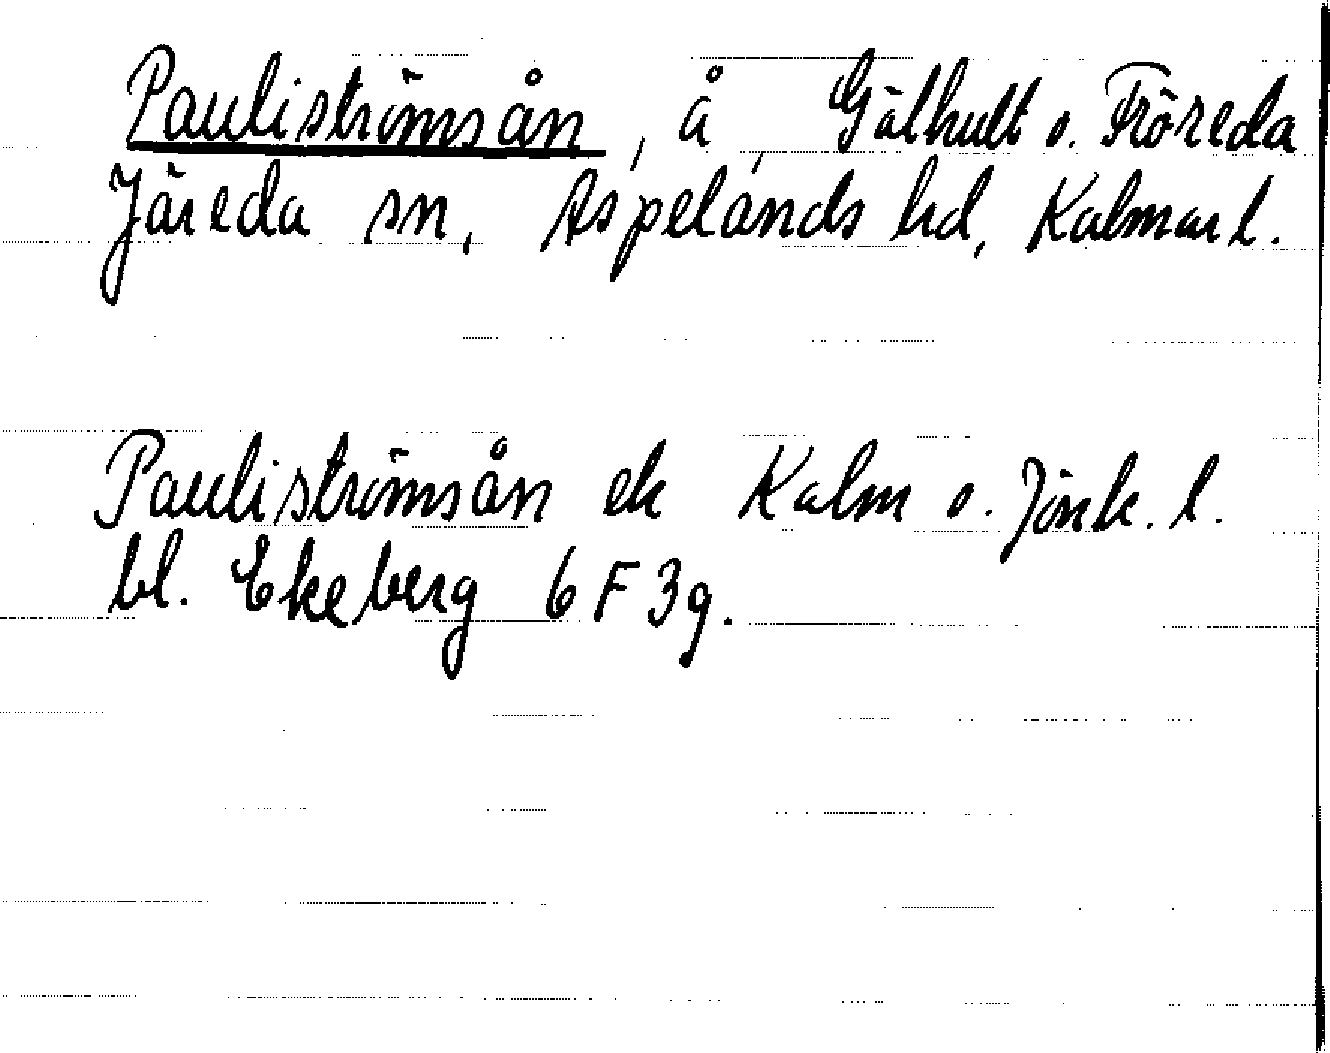 Pauliströmsån, å, Gölhult o. Fröreda
Järeda sn, Aspelands hd, Kalmar l.
Pauliströmsån ek Kalm o. Jönk. l.
bl. Ekeberg 6 F 3g.